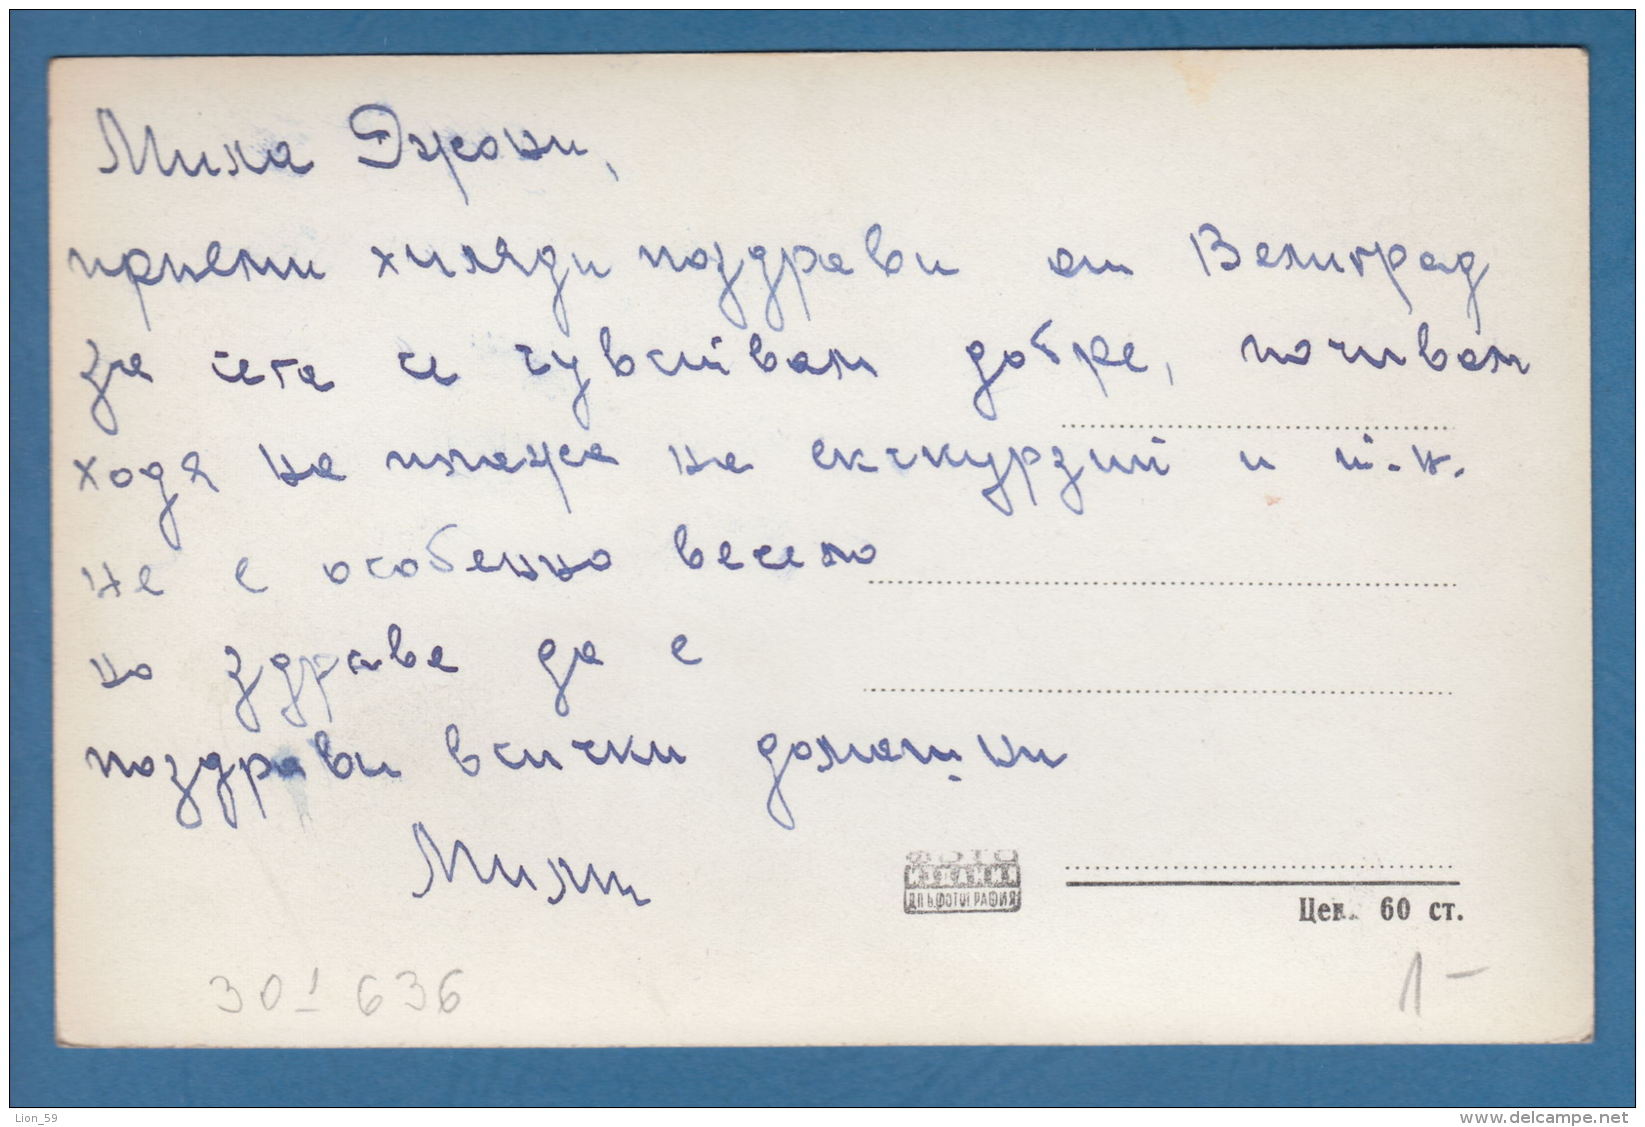 Мила Джони,
приеми хиляди поздрави от Велиград
за сега се чувствам добре, почивам
ходя на плажа на екскурзии и т.н.
не е особенно весело
но здраве да е
поздрави всички домашни
ФОТО
ИЗДАНИЯ
ДП Б.ФОТОГРАФИЯ
Цена 60 ст.
301 636
1-
Lion_59
www.delcampe.net